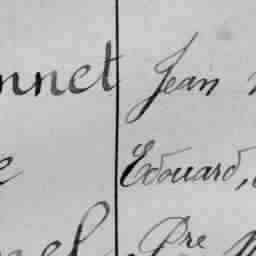 nnet Jean
e Edouard,
el Pre